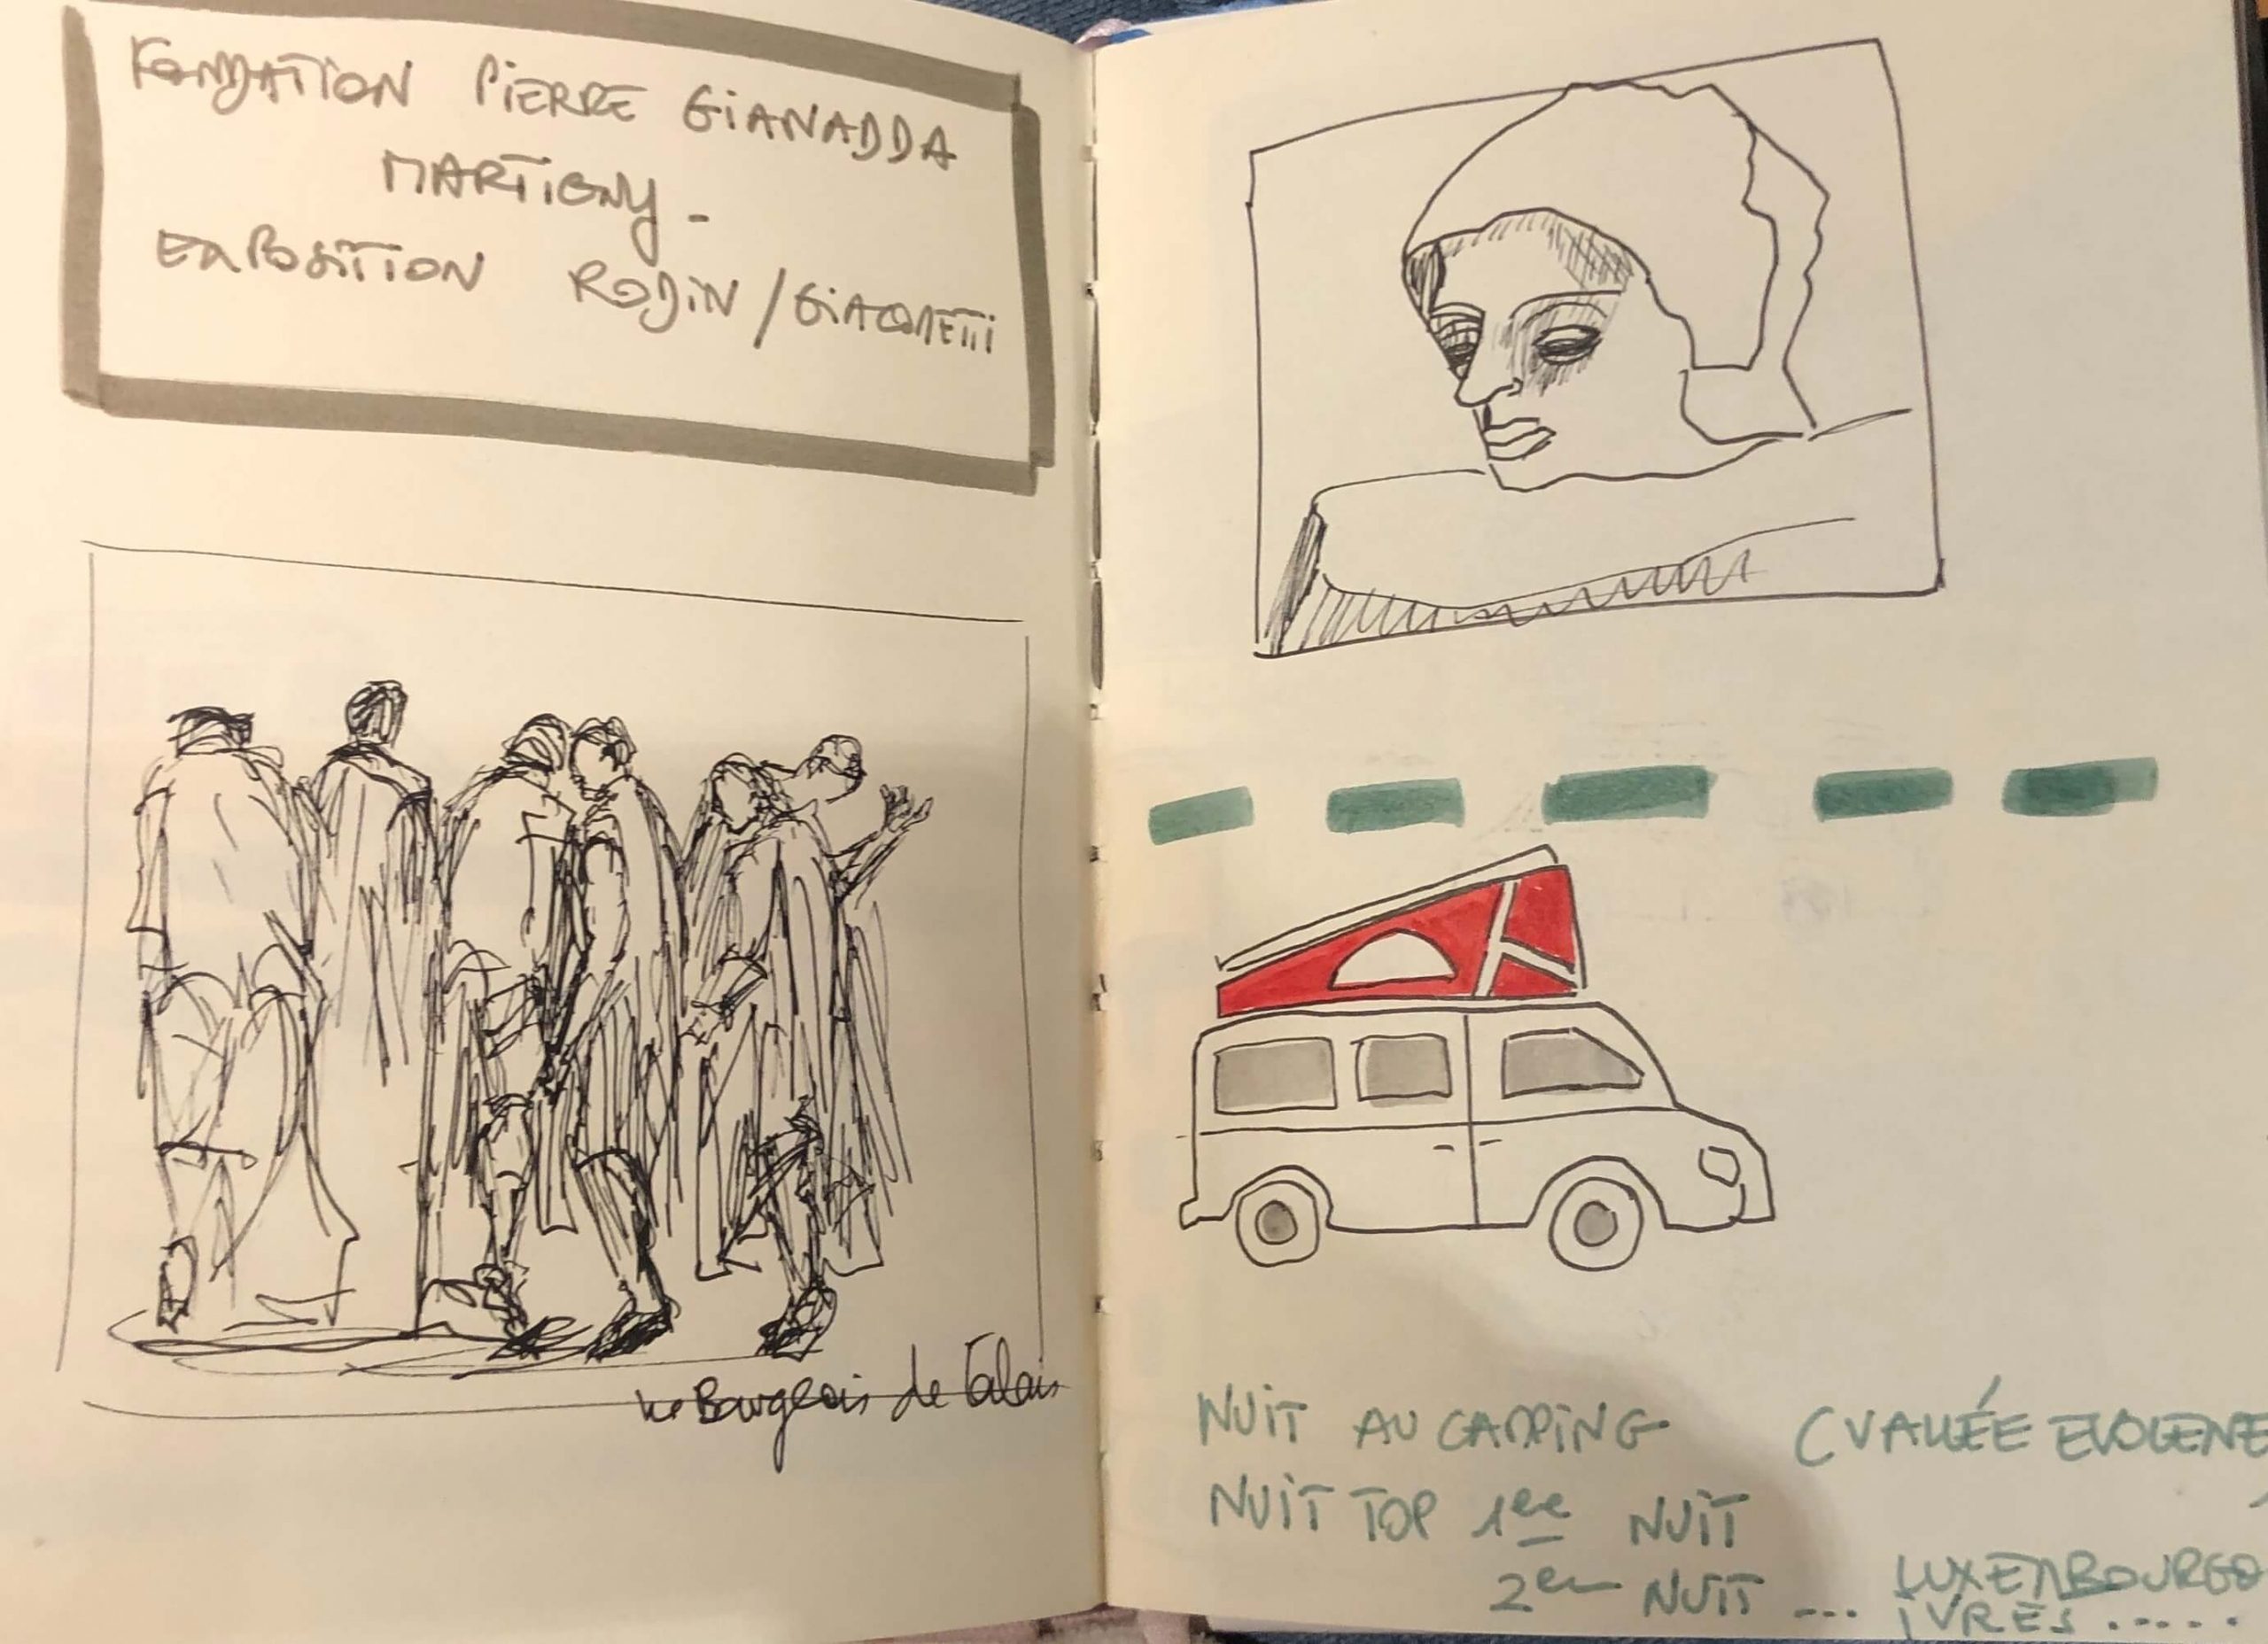 FONDATION PIERRE GIANADDA
MARTIGNY -
EXPOSITION RODIN / GIACOMETTI
Les Bourgeois de Calais
NUIT AU CAMPING (VALLÉE EVOLENE
NUIT TOP 1ère NUIT
2em NUIT ... LUXEMBOURGO
IVRES .....